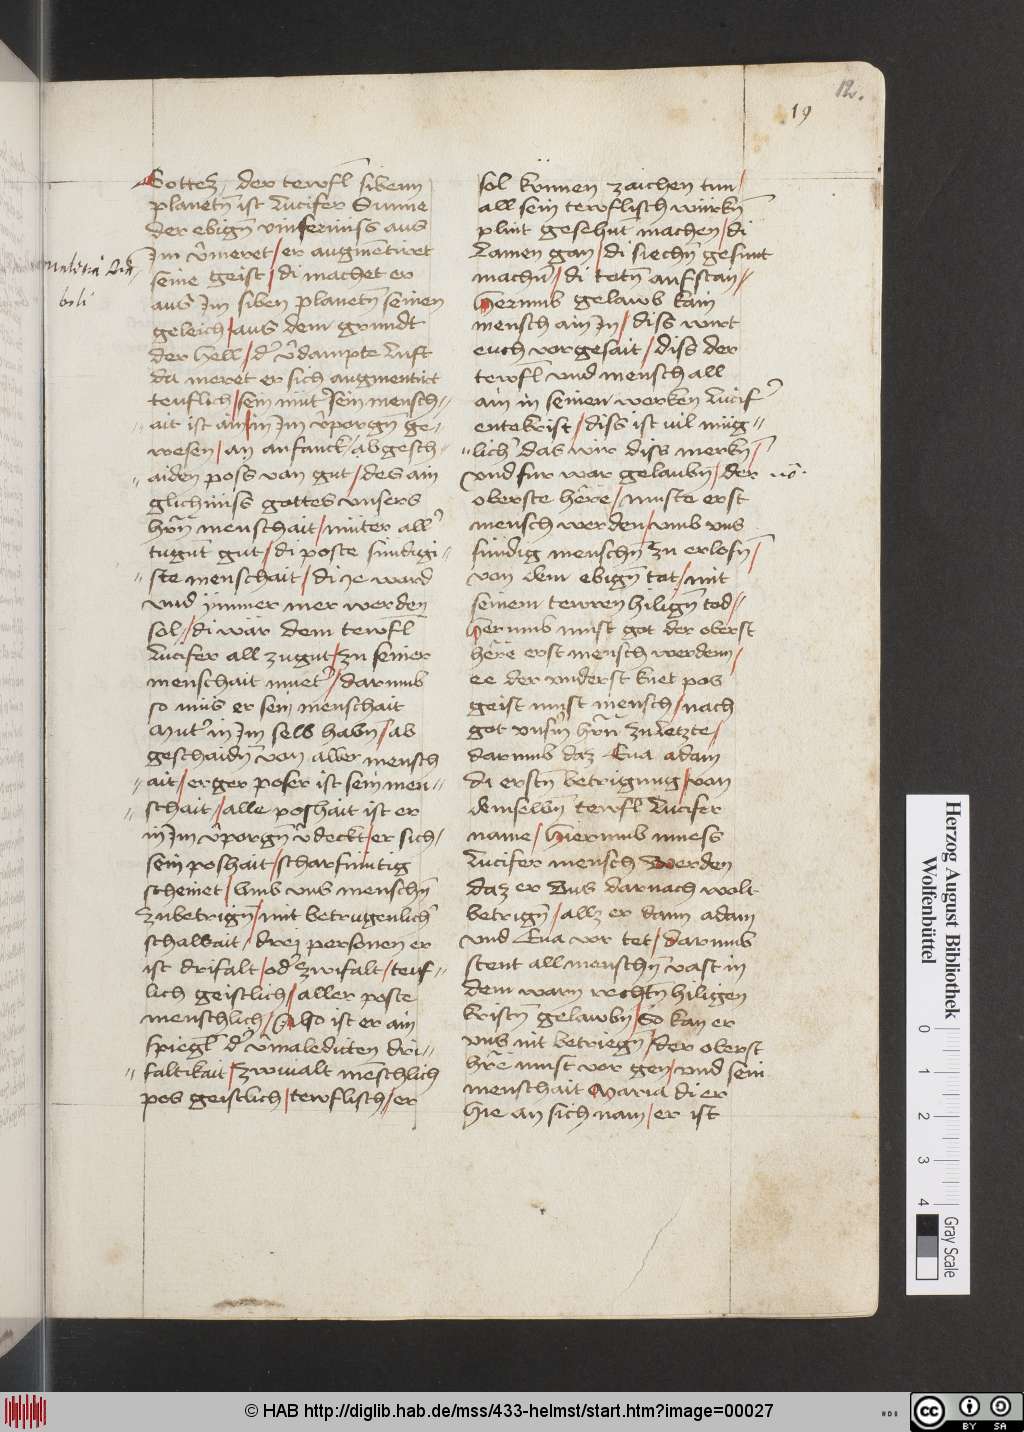 12.
19
Gottez / der tewfl̄ sibenn
planetn̄ ist Lucifer Sunne
der ebign̄ vinsternüss aus
Im v̂meret / er augmentiret
seine geist / di machet er
aus Im siben planetn̄ seinen
geleich / aus dem grundt
der hell / d' v̂dampte Luft
da meret er sich augmentirt
teuflich / sein mut' sein mensch-
ait ist ain in Im v̂porgn̄ ge-
wesen / an anfanck / abgesch-
aiden poss van gut / des ain
glichnüss gottes vnsers
hr̄n menschait / müter all'
tugunt gut / di poste sündigi-
ste menschait / di ye ward
vnd ÿmmer mer werden
sol / di wär dem tewfl̄
Lucifer all zugut / zu seiner
menschait muet' / darumb
so müs er sein menschait
Mut' in Im selb habn̄ / ab
geschaidn̄ von aller mensch
ait / erger poser ist sein men-
schait / alle poshait ist er
in Im v̂porgn̄ v̂deckt / er sich
sein poshait / scharfsinnig
scheinet / vmb vns menschn̄
zubetrign̄ / mit betrugenlich'
schalkait / drei personen er
ist drifalt / od' zwifalt / teuf-
lich geistlich / aller poste
menschlich / Also ist er ain
spiegl̄ d' v̂maledicten dri-
faltikait / zwiualt menschlich
pos geistlich / tewflisch / er
malitia dia
boli
sol künnen zaichen tun /
all sein tewflisch würkn̄
plint gesehnt machen / di
Lamen gan / di siechn̄ gesunt
machn̄ / di totn̄ aufstan /
Hermb gelawb kain
mensch aim In / diss wirt
euch vorgesait / diss der
tewfl̄ vnd mensch all
ain in seinen werken Lucif'
entekrist / diss ist vil müg-
lich' das wir diss merkn̄ /
vnd fur war gelaubn̄ / der
oberste hêre / muste erst
mensch werden / vmb vns
sündig menschn̄ zu erlosn̄ /
von dem ebign̄ tot / mit
seinem tewren hilign̄ tod /
Hermb must got der oberst
hêre erst mensch werdenn /
ee der vnderst knet pos
geist must mensch / nach
got vnsm̄ hr̄n zuletzte /
darumb daz Eua adam
di erstn̄ betrignug / von
demselbn̄ tewfl Lucifer
name / hiermb muess
Lucifer mensch werden
daz er vns darnach wolt
betrign̄ / allz er dann adam
vnd Eua vor tet / darumb
stent all menschn̄ vast in
dem warn rechtn̄ hiligen
kristn̄ gelawbn̄ / So kan er
vns nit betriegn̄ / der oberst
hr̂e must vor gen / vnd sein
menschait Maria di er
hie an sich nam / er ist
nō.
Herzog August Bibliothek
Wolfenbüttel
0 1 2 3 4
Gray Scale
© HAB http://diglib.hab.de/mss/433-helmst/start.htm?image=00027
HDB
cc BY SA